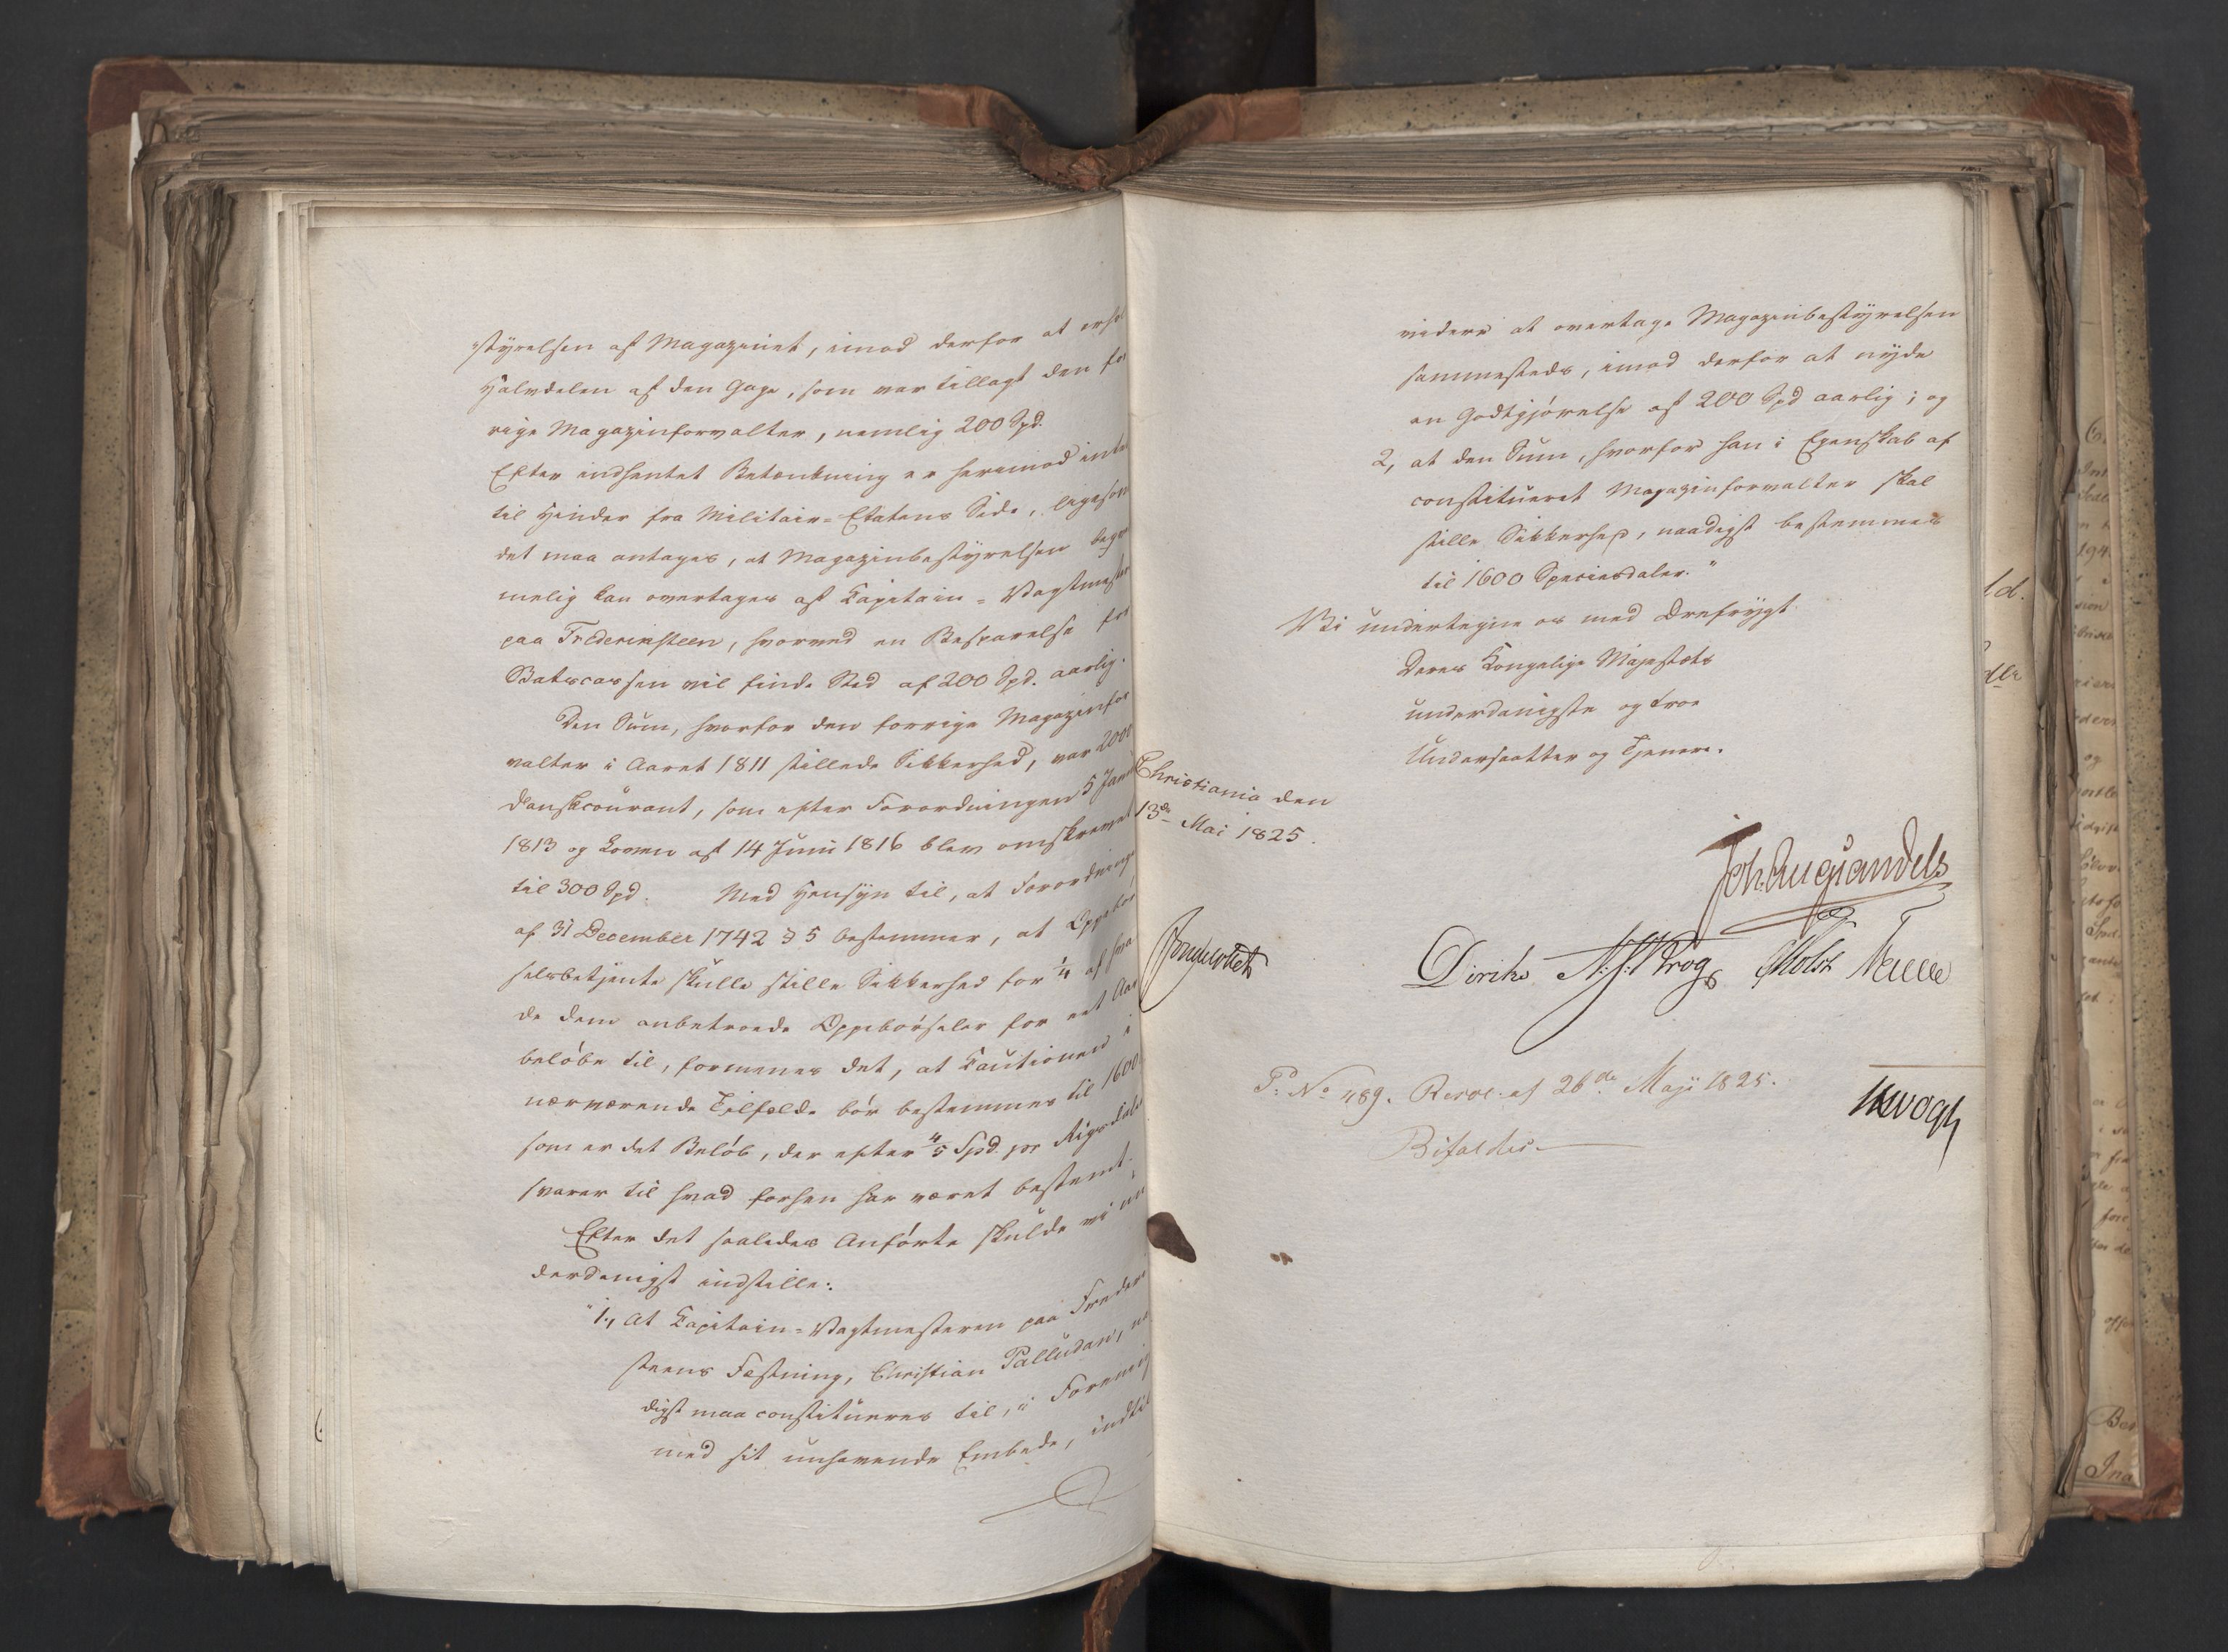 styrelsen af Magazinet, imod derfor at erhol
Halvdelen af den Gage, som var tillagt den for
rige Magazinforvalter, nemlig 200 Spd.
Efter indhentet Betænkning er herimod intet
til Hinder fra Militair-Etatens Side, ligesom
det maa antages, at Magazinbestyrelsen beqve
melig kan overtages af Kapitain-Vagtmester
paa Fredericksteen, hvorved en Besparelse for
Statscassen vil finde Sted af 200 Spd. aarlig.
Den Sum, hvorfor den forrige Magazinfor
valter i Aaret 1811 stillede Sikkerhed, var 2000
dansk courant, som efter Forordningen 5 Janu
1813 og Loven af 14 Juni 1816 blev omskrevet
til 300 Spd. Med Hensyn til, at Forordninge
af 31 December 1742 § 5 bestemmer, at Oppebør
selsbetjente skulle stille Sikkerhed for 1/4 af hva
de dem anbetroede Oppebørseler for eet Aar
beløbe til, formenes det, at Kautionen i
nærværende Tilfælde bør bestemmes til 1600
som er det Beløb, der efter 4/5 Spd. pr Rigsdale
svarer til hvad forhen har været bestemt.
Efter det saaledes Anførte skulde vi un
derdanigst indstille:
"1., At Kapitain-Vagtmesteren paa Frederic
steens Fæstning, Christian Palludan, naa
digst maa constitueres til, i Forening
med sit nuhavende Embede, indtil
videre at overtage Magazinbestyrelsen
sammesteds, imod derfor at nyde
en Godtgjørelse af 200 Spd aarlig; og
2, at den Sum, hvorfor han i Egenskab af
constitueret Magazinforvalter skal
stille Sikkerhed, naadigst bestemmes
til 1600 Speciesdaler."
Vi undertegne os med Ærefrygt
Deres Kongelige Majestæts
underdanigste og troe
Undersaatter og Tjenere.
Christiania den
13de Mai 1825.
Joh. Aug. Sandels
Diriks Krog Holst
P: No 489. Resol. af 26de Maji 1825.
Bifaldes.
Vogt